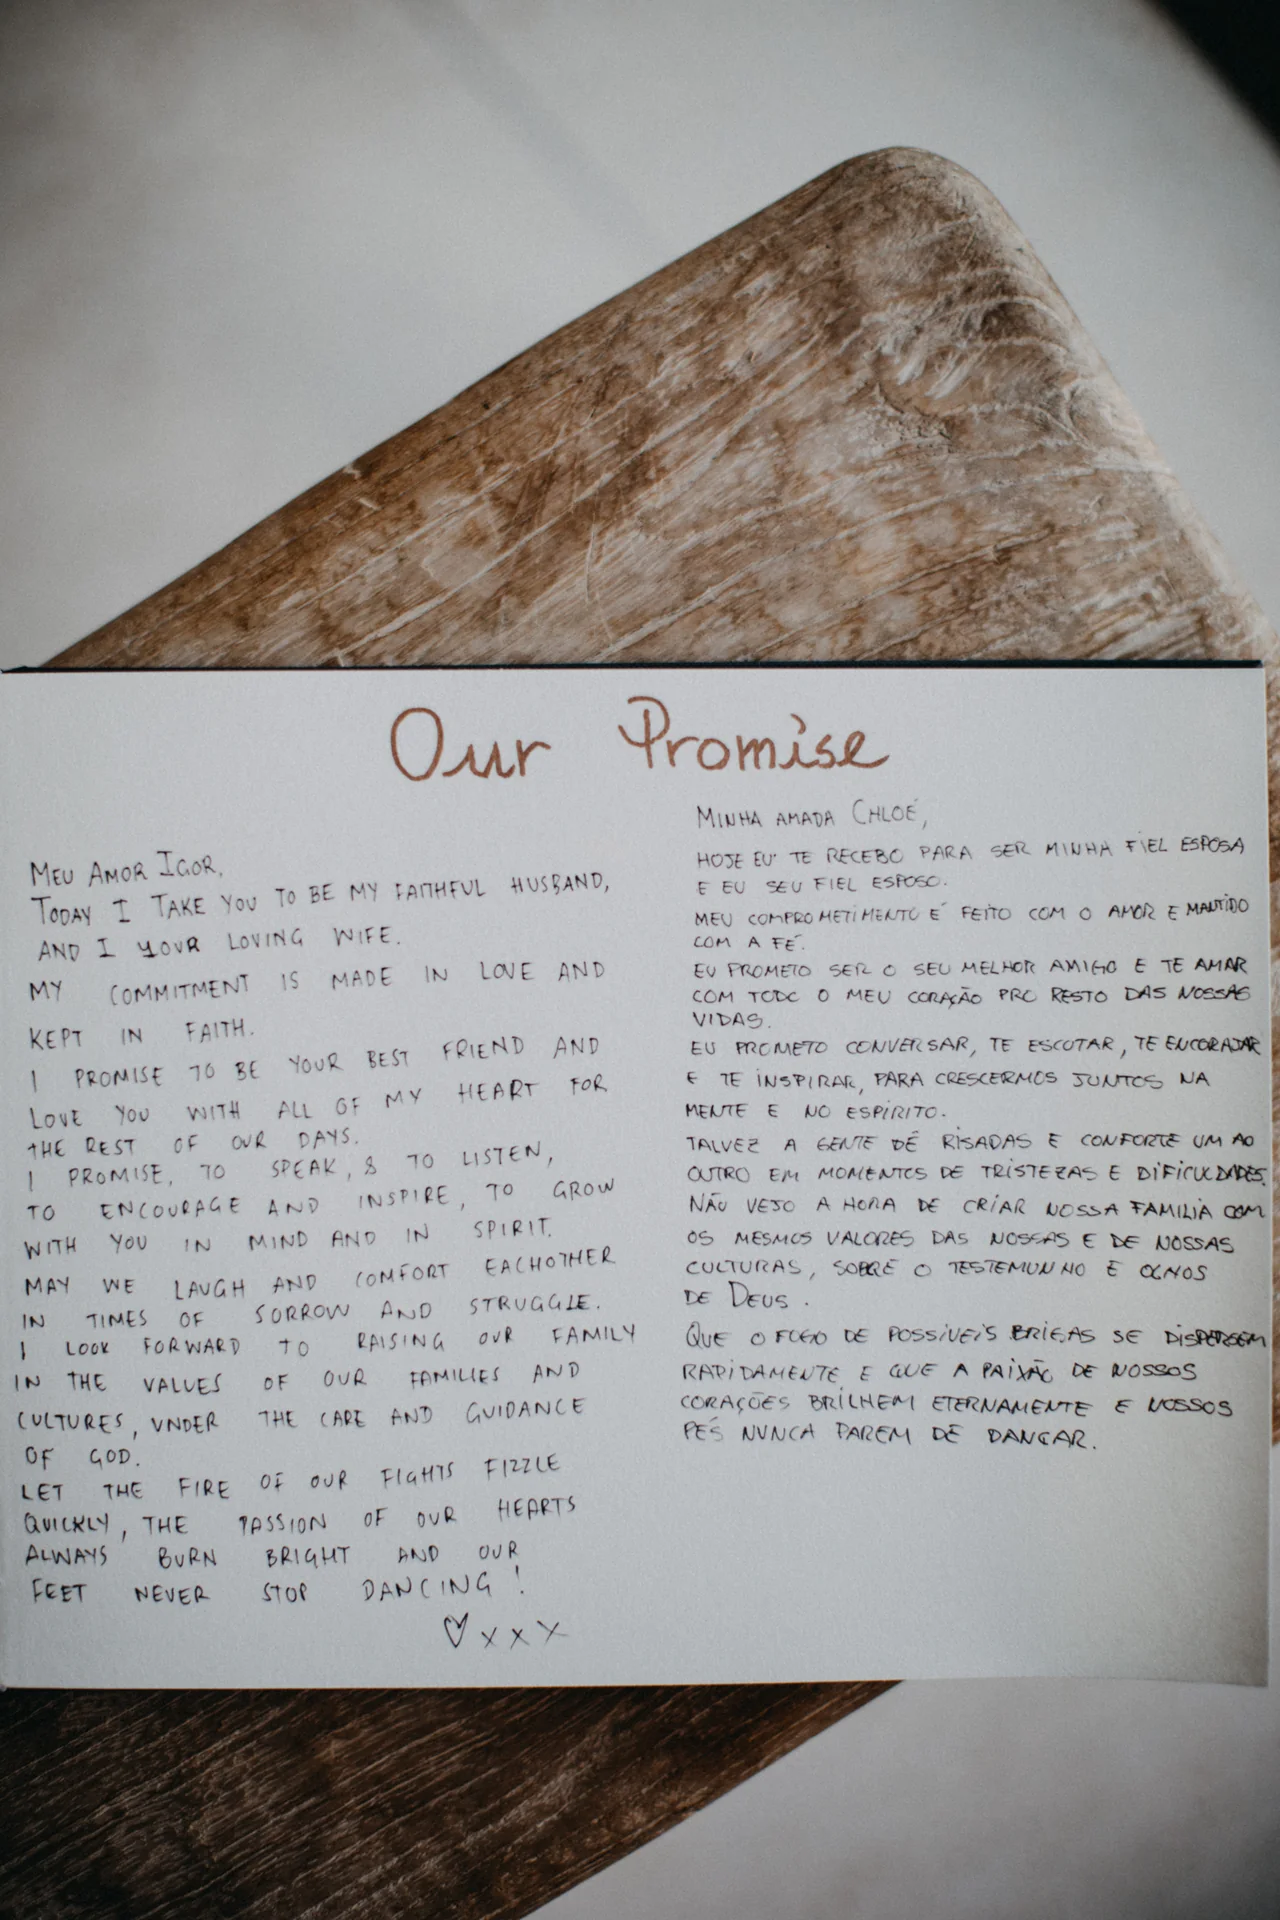 Our Promise
MEU AMOR IGOR,
TODAY I TAKE YOU TO BE MY FAITHFUL HUSBAND,
AND I YOUR LOVING WIFE.
MY COMMITMENT IS MADE IN LOVE AND
KEPT IN FAITH.
I PROMISE TO BE YOUR BEST FRIEND AND
LOVE YOU WITH ALL OF MY HEART FOR
THE REST OF OUR DAYS.
I PROMISE, TO SPEAK, & TO LISTEN,
TO ENCOURAGE AND INSPIRE, TO GROW
WITH YOU IN MIND AND IN SPIRIT.
MAY WE LAUGH AND COMFORT EACHOTHER
IN TIMES OF SORROW AND STRUGGLE.
I LOOK FORWARD TO RAISING OUR FAMILY
IN THE VALUES OF OUR FAMILIES AND
CULTURES, UNDER THE CARE AND GUIDANCE
OF GOD.
LET THE FIRE OF OUR FIGHTS FIZZLE
QUICKLY, THE PASSION OF OUR HEARTS
ALWAYS BURN BRIGHT AND OUR
FEET NEVER STOP DANCING!
♡ x x x
MINHA AMADA CHLOÉ,
HOJE EU TE RECEBO PARA SER MINHA FIEL ESPOSA
E EU SEU FIEL ESPOSO.
MEU COMPROMETIMENTO É FEITO COM O AMOR E MANTIDO
COM A FÉ.
EU PROMETO SER O SEU MELHOR AMIGO E TE AMAR
COM TODO O MEU CORAÇÃO PRO RESTO DAS NOSSAS
VIDAS.
EU PROMETO CONVERSAR, TE ESCUTAR, TE ENCORAJAR
E TE INSPIRAR, PARA CRESCERMOS JUNTOS NA
MENTE E NO ESPÍRITO.
TALVEZ A GENTE DÊ RISADAS E CONFORTE UM AO
OUTRO EM MOMENTOS DE TRISTEZAS E DIFICULDADES.
NÃO VEJO A HORA DE CRIAR NOSSA FAMILIA COM
OS MESMOS VALORES DAS NOSSAS E DE NOSSAS
CULTURAS, SOBRE O TESTEMUNHO E OLHOS
DE DEUS.
QUE O FOGO DE POSSÍVEIS BRIGAS SE DISPERSEM
RAPIDAMENTE E QUE A PAIXÃO DE NOSSOS
CORAÇÕES BRILHEM ETERNAMENTE E NOSSOS
PÉS NUNCA PAREM DE DANÇAR.